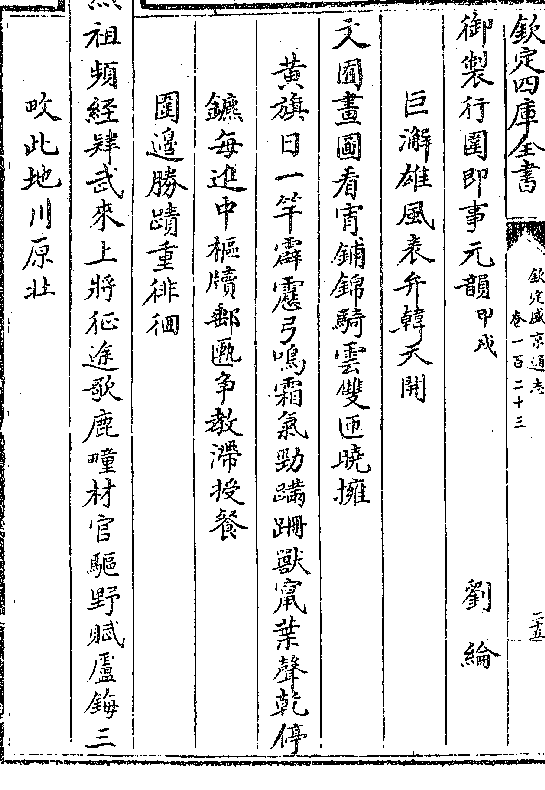 欽定四庫全書
欽定盛京通志
卷一百二十三
二十五
御製行圍即事元韻甲戌 劉綸
巨澥雄風表弁韓天開
文囿畫圖看宵鋪錦騎雲雙匝曉擁
黄旗日一竿霹靂弓鳴霜氣勁蹣跚獸竄葉聲乾停
鑣每進中樞牘郵匭争教滯授餐
圍邊勝蹟重徘徊
祖頻經肄武來上將征途歌鹿疃材官驅野賦盧鋂三
畋此地川原壯